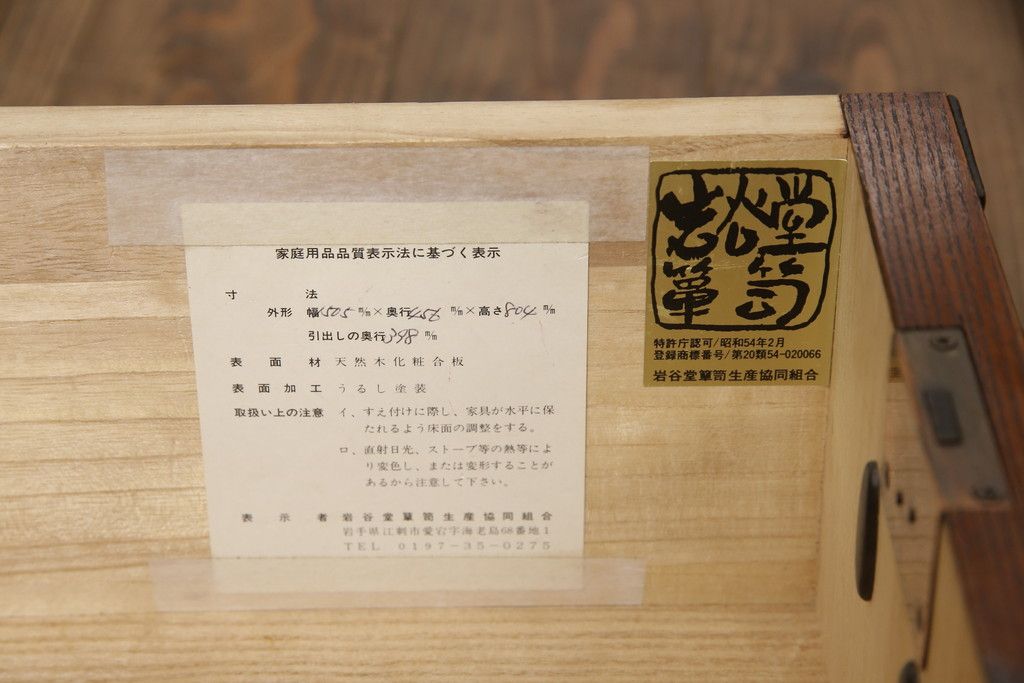 家庭用品品質表示法に基づく表示
寸 法
外形 幅505m/m×奥行456m/m×高さ804m/m
引出しの奥行398m/m
表面材 天然木化粧合板
表面加工 うるし塗装
取扱い上の注意 イ、すえ付けに際し、家具が水平に保
たれるよう床面の調整をする。
ロ、直射日光、ストーブ等の熱等によ
り変色し、または変形することが
あるから注意して下さい。
表示者 岩谷堂簞笥生産協同組合
岩手県江刺市愛宕字海老島68番地1
TEL 0197-35-0275
岩谷堂
簞笥
特許庁認可/昭和54年2月
登録商標番号/第20類54-020066
岩谷堂簞笥生産協同組合